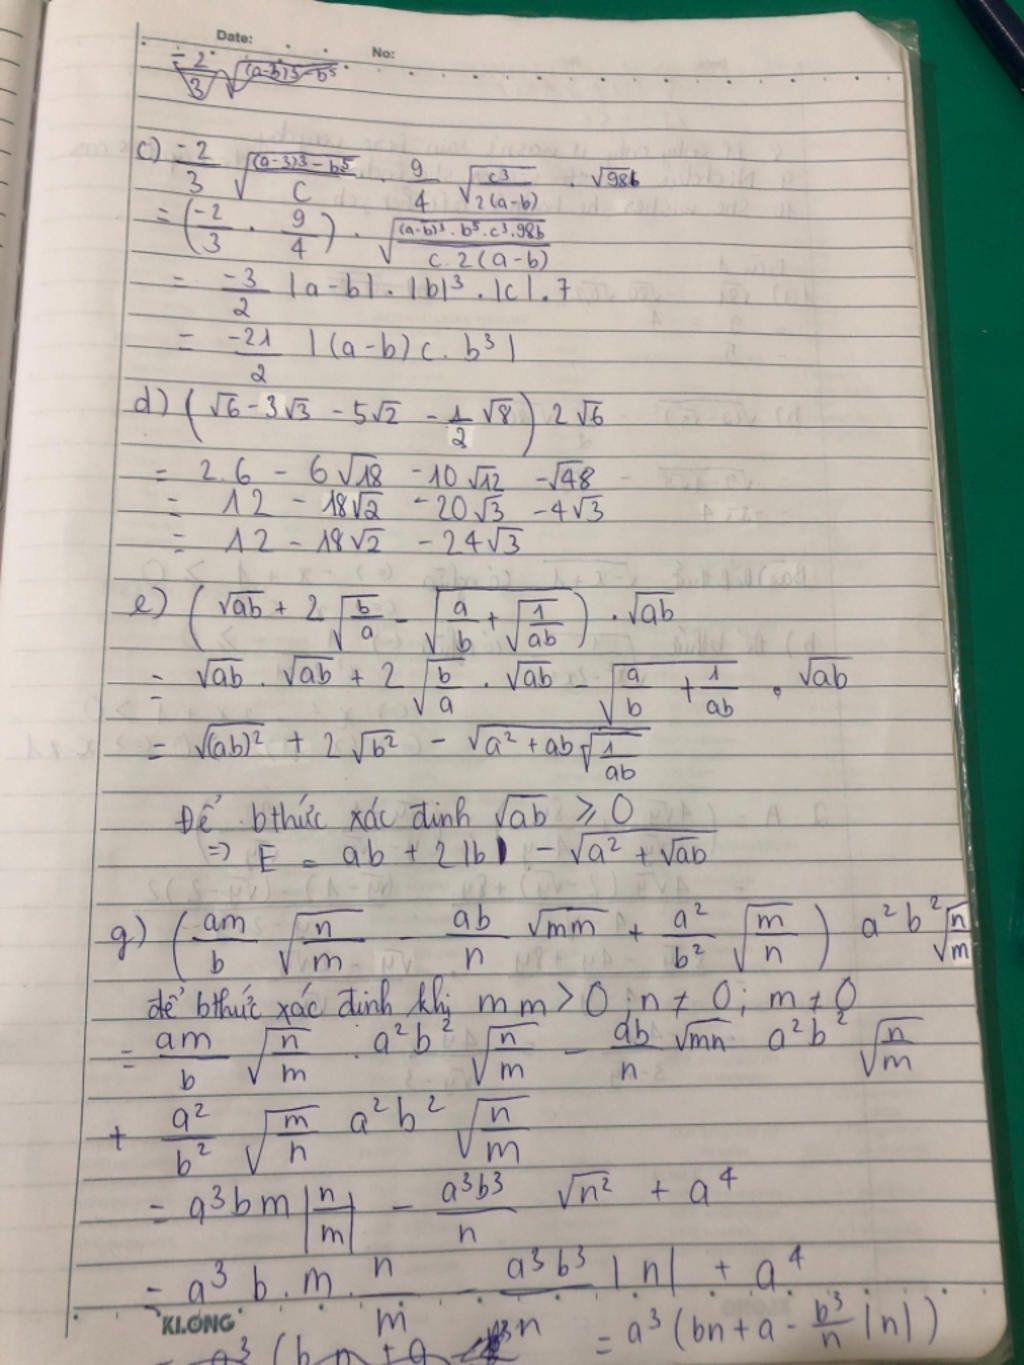 Date: No:
-2/3 √((a-b)3-b⁵
c) -2/3 √((a-3)3-b⁵/C) . 9/4 √(c³/2(a-b)) . √98b
= (-2/3 . 9/4) . √((a-b)³.b⁵.c³.98b/c.2(a-b))
= -3/2 |a-b|.|b|³.|c|.7
= -21/2 |(a-b)c.b³|
d) (√6-3√3-5√2-1/2√8) 2√6
= 2.6 - 6√18 - 10√12 - √48
= 12 - 18√2 - 20√3 - 4√3
= 12 - 18√2 - 24√3
e) (√ab + 2√(b/a) - √(a/b + √(1/ab))) . √ab
= √ab . √ab + 2√(b/a) . √ab - √(a/b + 1/ab) . √ab
= √(ab)² + 2√b² - √(a² + ab√(1/ab))
Để bthức xác định √ab ≥ 0
=> E = ab + 2|b| - √(a² + √ab)
g) (am/b √(n/m) - ab/n √mm + a²/b² √(m/n)) a²b²√(n/m)
để bthức xác định khi mm > 0; n ≠ 0; m ≠ 0
= am/b √(n/m) . a²b² √(n/m) - ab/n √mn a²b² √(n/m)
+ a²/b² √(m/n) a²b² √(n/m)
= a³bm |n/m| - a³b³/n √n² + a⁴
= a³b.m.n/m - a³b³/n |n| + a⁴
KLONG
= a³(bn+a-b³/n|n|)